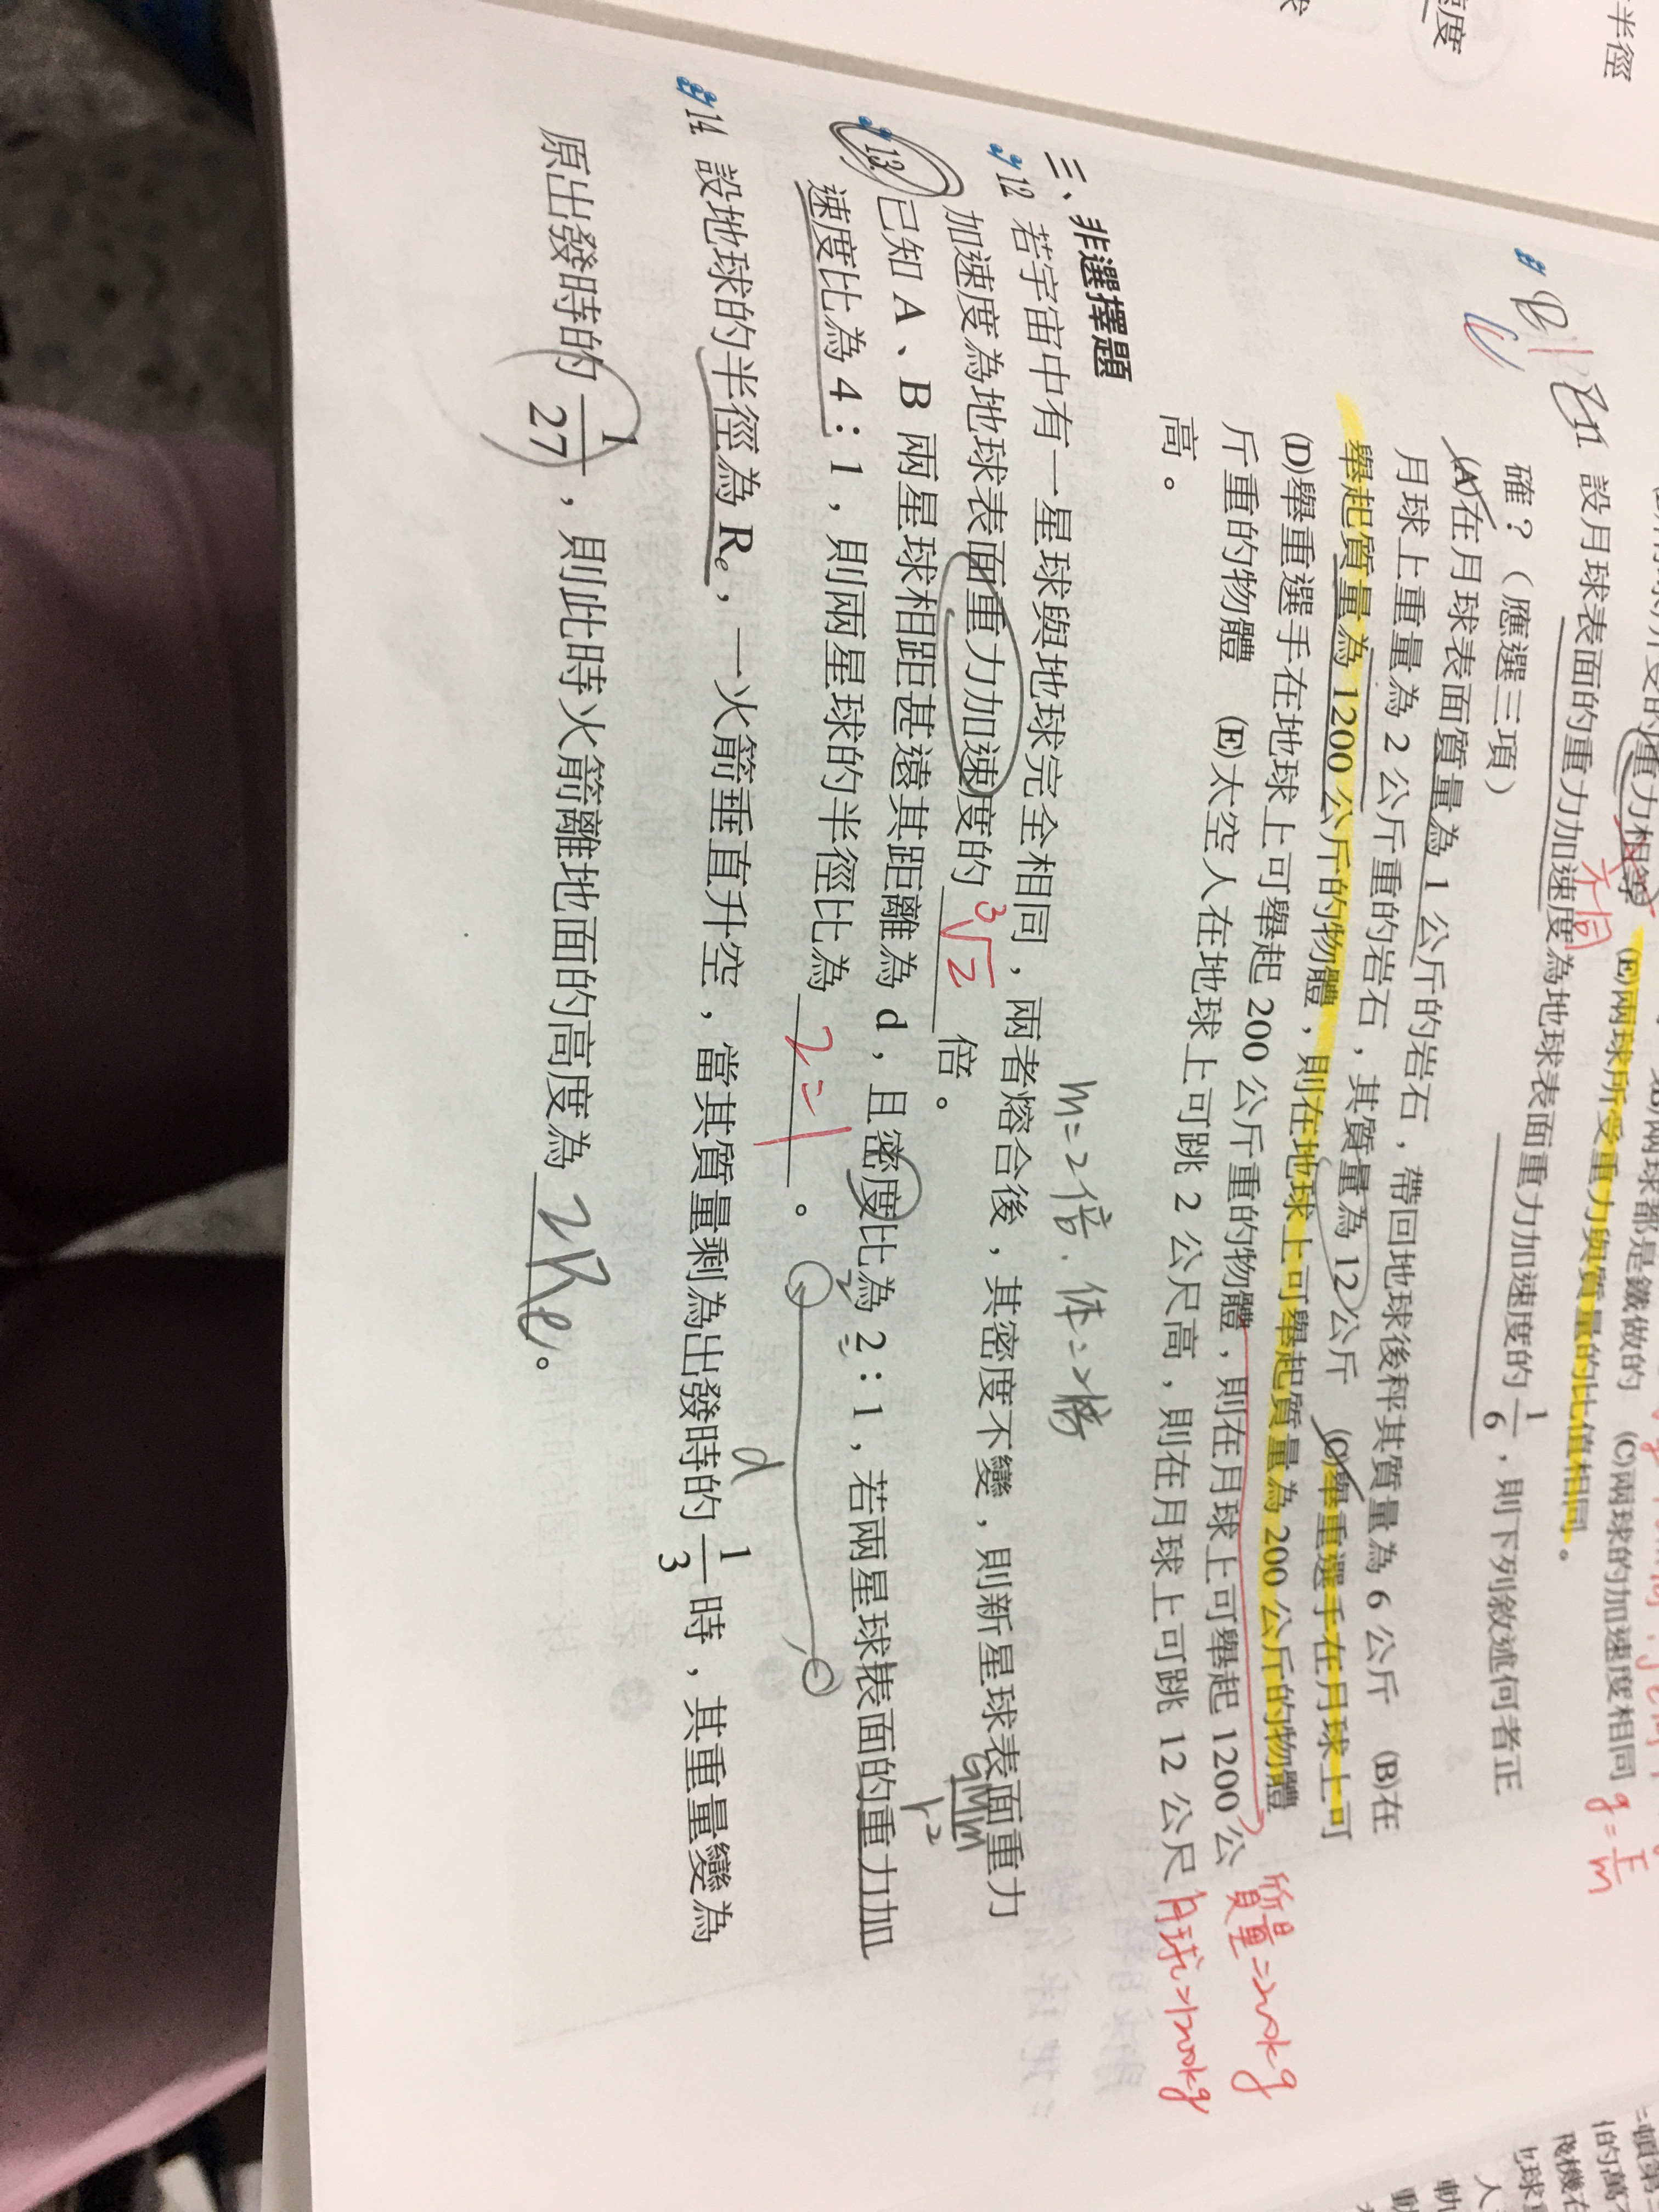 半徑
速度
重力相等
不同
(E)兩球所受重力與質量的比值相同。
(C)兩球的加速度相同
g=F/m
11. 設月球表面的重力加速度為地球表面重力加速度的1/6，則下列敘述何者正
確？（應選三項）
(A)在月球表面質量為 1 公斤的岩石，帶回地球後秤其質量為 6 公斤　(B)在
月球上重量為 2 公斤重的岩石，其質量為 12 公斤　(C)舉重選手在月球上可
舉起質量為 1200 公斤的物體，則在地球上可舉起質量為 200 公斤的物體
(D)舉重選手在地球上可舉起 200 公斤重的物體，則在月球上可舉起 1200 公
斤重的物體　(E)太空人在地球上可跳 2 公尺高，則在月球上可跳 12 公尺
高。
質量=200kg
月球=1200kg
三、非選擇題
m=2倍、体=2倍
12. 若宇宙中有一星球與地球完全相同，兩者熔合後，其密度不變，則新星球表面重力
加速度為地球表面重力加速度的 ³√2 倍。
GMm/r²
13. 已知 A、B 兩星球相距甚遠其距離為 d，且密度比為 2：1，若兩星球表面的重力加
速度比為 4：1，則兩星球的半徑比為 2=1 。
d
14. 設地球的半徑為 Re，一火箭垂直升空，當其質量剩為出發時的1/3時，其重量變為
原出發時的1/27，則此時火箭離地面的高度為 2Re 。